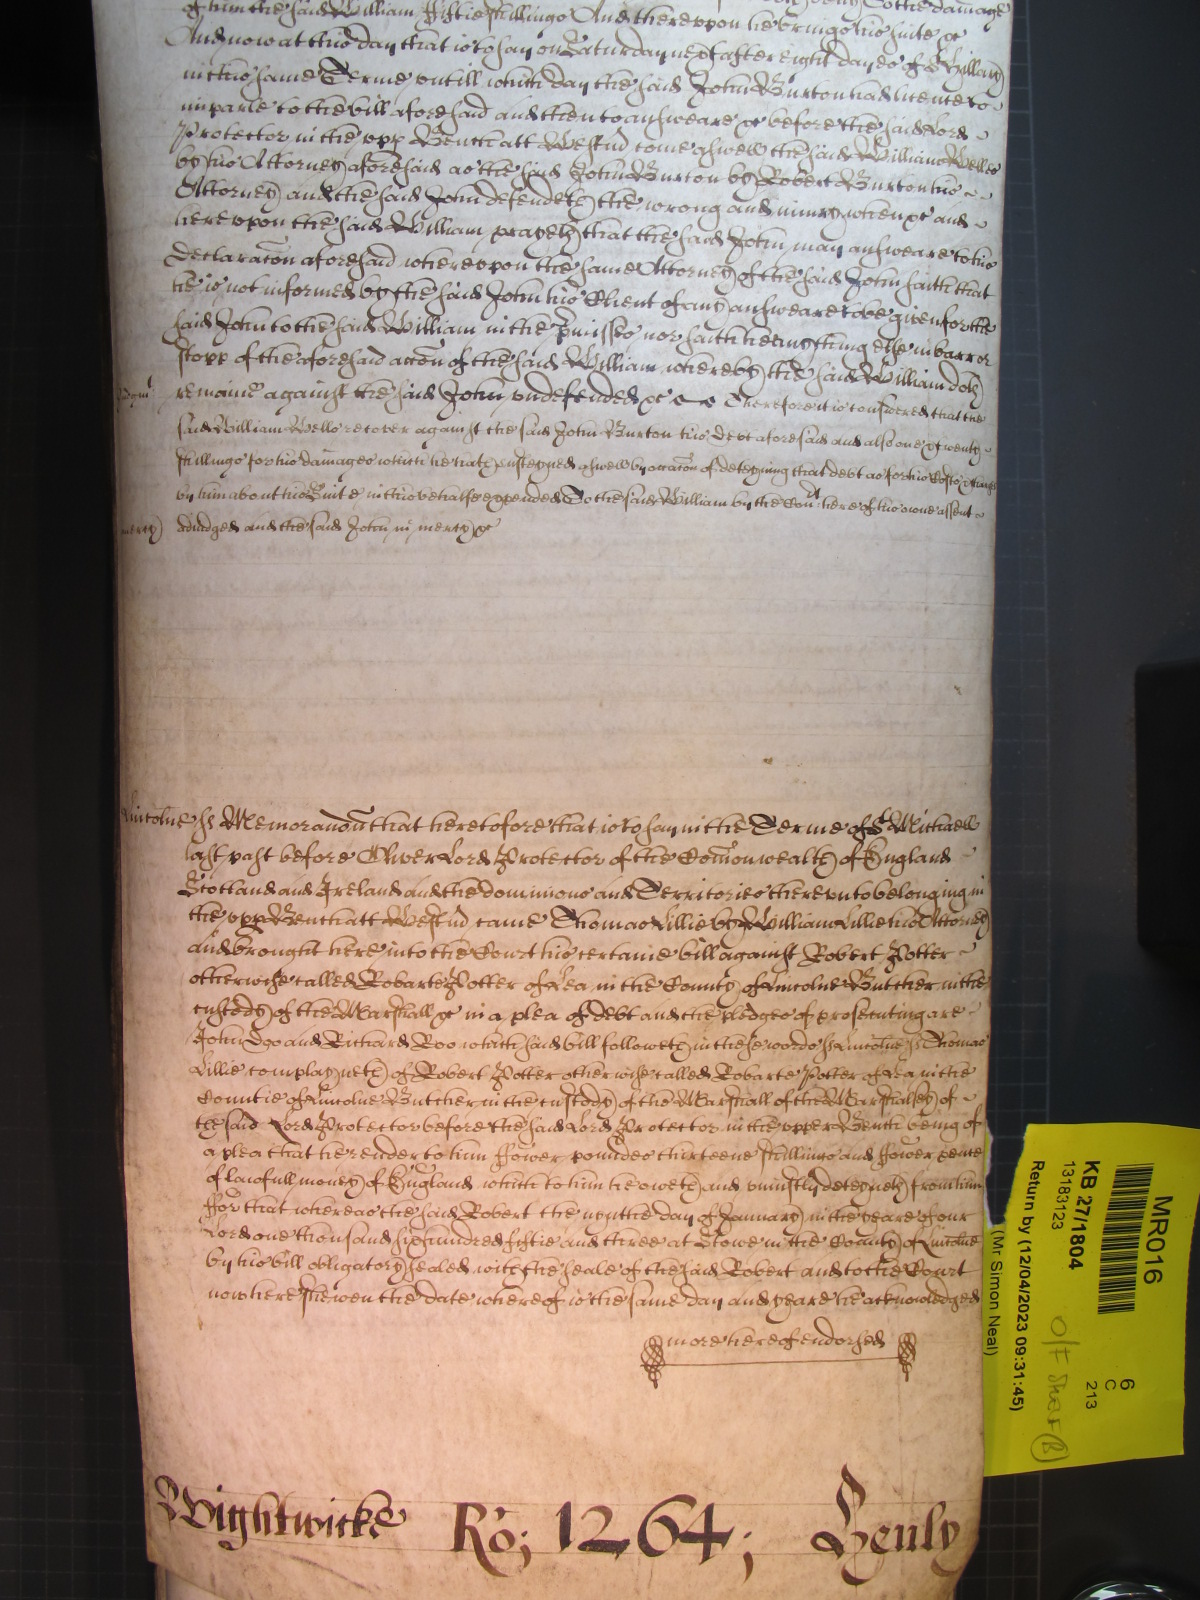 of him the said William fiftie shillings And thereupon he brings his suite &c
And now at this day that is to say on Saturday next after eight dayes of St Hillary
in this same Terme untill which day the said John Burton had licence to
imparle to the bill aforesaid and then to answeare &c before the said Lord
Protector in the upp Bench att Westm̃ come aswell the said William Wells
by his Attorney aforesaid as the said John Burton by Robert Burton his
Attorney and the said John defendeth the wrong and iniury when &c and
hereupon the said William prayeth that the said John may answeare to his
Declaracõn aforesaid whereupon the same Attorney of the said John saith that
he is not informed by the said John his Client of any answeare to be given for the
said John to the said William in the p̃misses nor saith hee any thing else in barr or
stopp of the aforesaid accõn of the said William whereby the said William doth
remaine against the said John undefended &c Therefore it is considered that the
said William Wells recover against the said John Burton his Debt aforesaid and also one & twenty
shillings for his damages which he hath susteyned aswell by occacõn of deteyning that debt as for his Costs & charges
by him about his Suite in this behalfe expended To the said William by the Court here of his owne assent
adiudged and the said John in mercy &c
mercy
Lincolne ss Memorandum that heretofore that is to say in the Terme of St Michaell
last past before Oliver Lord Protector of the Comonwealth of England
Scotland and Ireland and the dominions and Territories thereunto belonging in
the upp Bench att Westm̃ came Thomas Lillie by William Lillie his Attorney
and brought here into the Court his certaine bill against Robert Potter
otherwise called Robarte Potter of Lea in the County of Lincolne Butcher in the
custody of the Marshall &c in a plea of debt and the pledges of prosecuting are
John Doo and Richard Roo which said bill followeth in these words ss Lincolne ss Thomas
Lillie complayneth of Robert Potter otherwise called Robarte Potter of Lea in the
Countie of Lincolne Butcher in the custody of the Marshall of the Marshalsey of
the said Lord Protector before the said Lord Protector in the upper Bench being of
a plea that he render to him fower poundes thirteene shillings and fower pence
of lawfull money of England which to him he oweth and uniustly deteyneth from him
For that whereas the said Robert the day of January in the yeare of our
Lord one thousand six hundred fiftie and three at Stowe in the County of Lincolne
by his bill obligatory sealed with the seale of the said Robert and to the Court
now here shewen the date whereof is the same day and yeare he acknowledged
more hereof endorsed
Wightwicke Ro; 1264; Henly
MR016
6
C
213
KB 27/1804
13183123
O/F Sheaf (B)
Return by (12/04/2023 09:31:45)
(Mr Simon Neal)